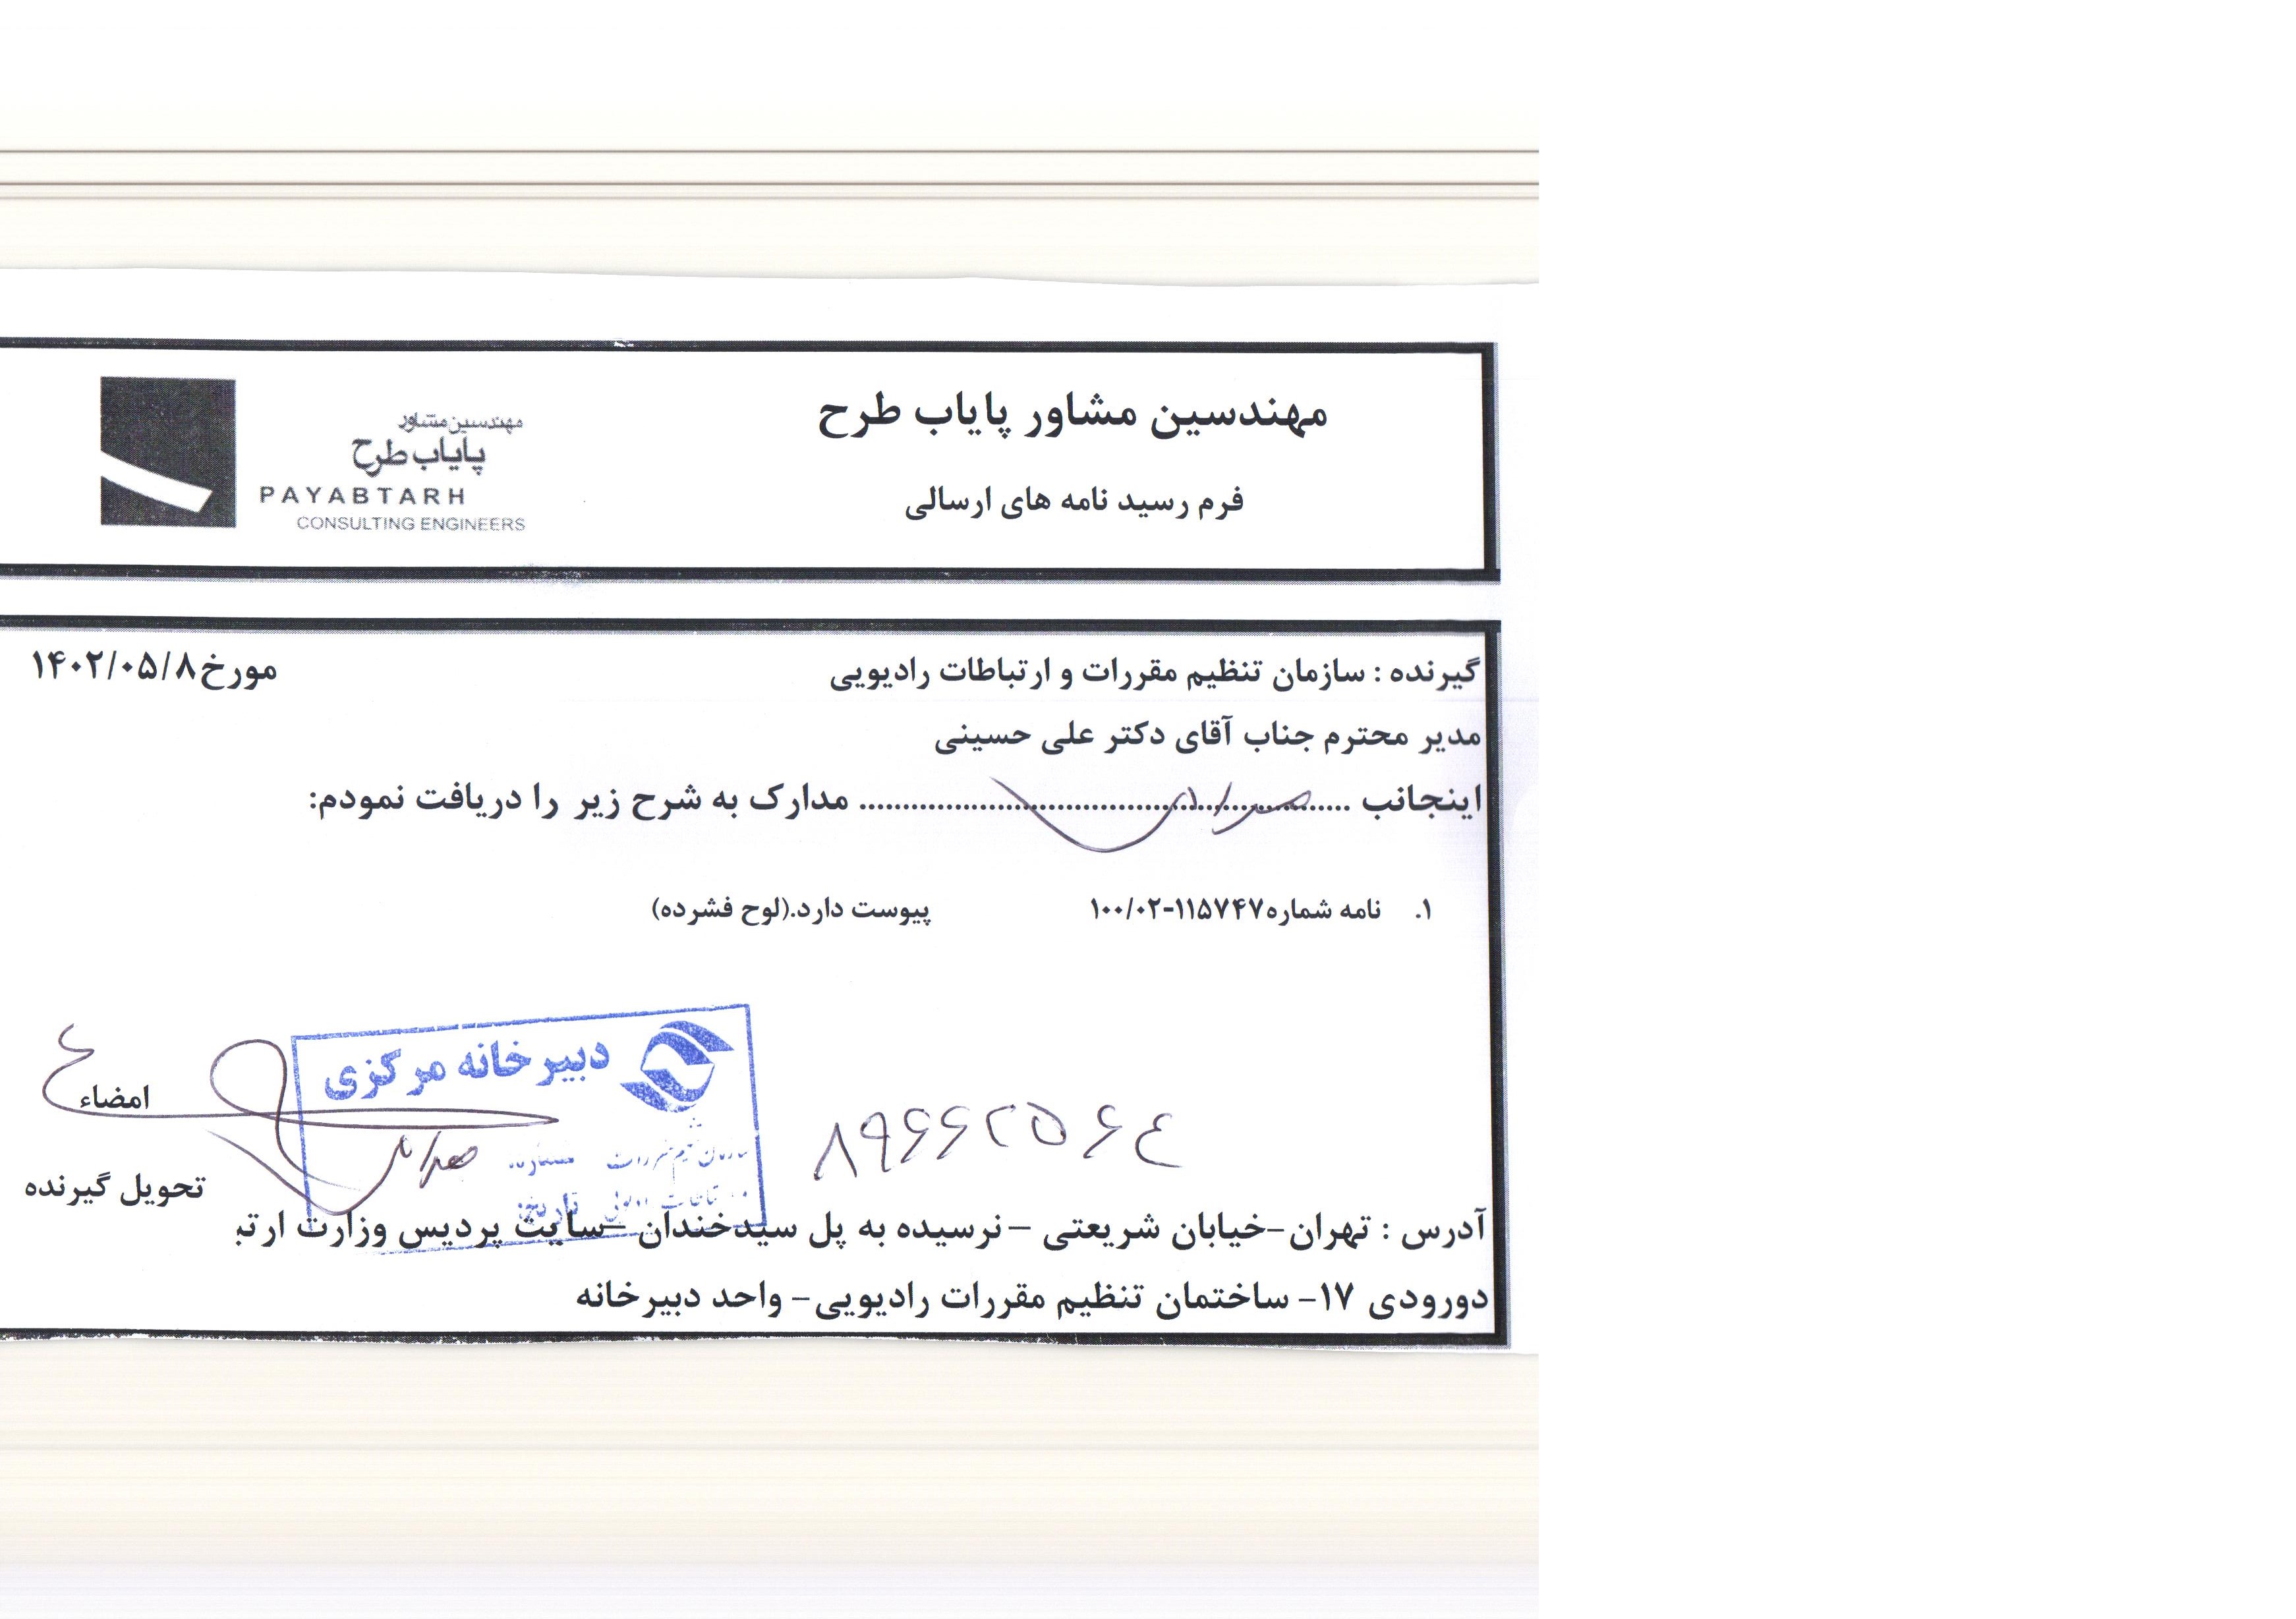 مهندسین مشاور پایاب طرح
فرم رسید نامه های ارسالی
مهندسین مشاور
پایاب طرح
PAYABTARH
CONSULTING ENGINEERS
گیرنده : سازمان تنظیم مقررات و ارتباطات رادیویی
مورخ۱۴۰۲/۰۵/۸
مدیر محترم جناب آقای دکتر علی حسینی
اینجانب ........................................................ مدارک به شرح زیر را دریافت نمودم:
۱. نامه شماره۱۱۵۷۴۷-۱۰۰/۰۲ پیوست دارد.(لوح فشرده)
دبیرخانه مرکزی
سازمان تنظیم مقررات
شماره:
تاریخ:
۸۹۶۶۲۵۶۴
امضاء
تحویل گیرنده
آدرس : تهران-خیابان شریعتی – نرسیده به پل سیدخندان –سایت پردیس وزارت ارتب
دورودی ۱۷- ساختمان تنظیم مقررات رادیویی- واحد دبیرخانه